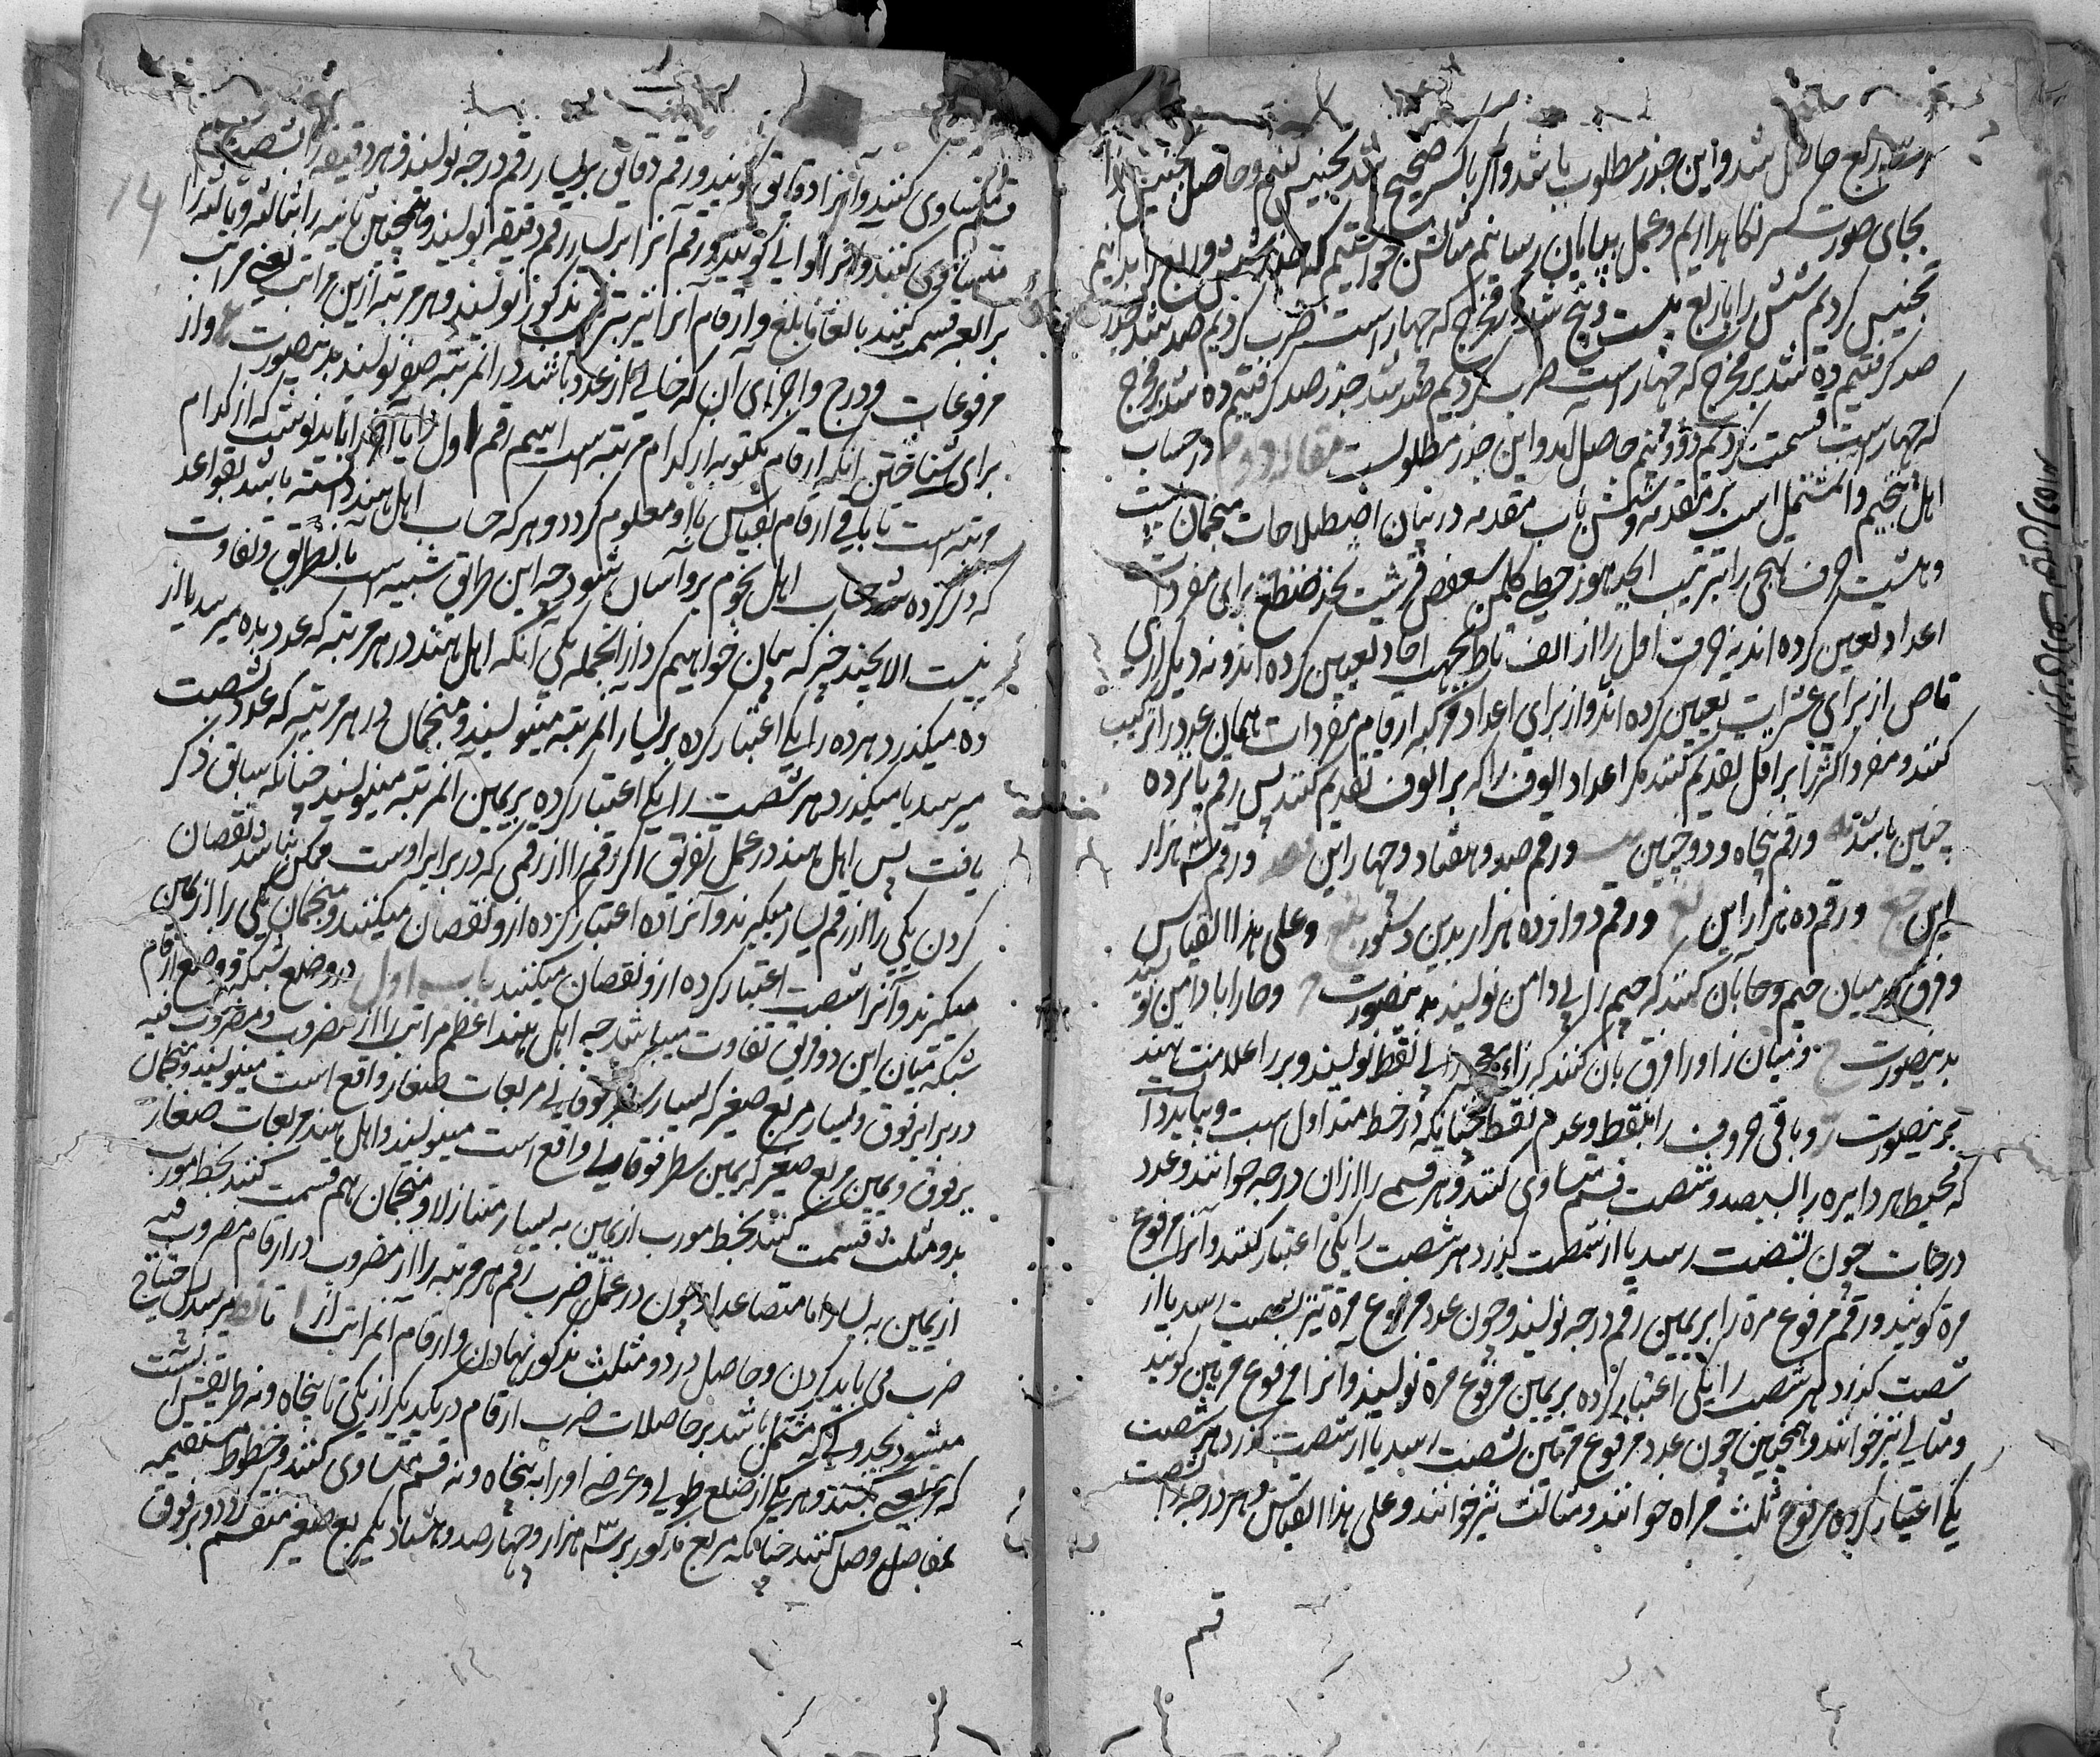 ربع حاصل شد و این جذر مطلوب باشد و اگر با کسر صحیح باشد تجنیس کنیم و حاصل تجنیس را
بجای صورت کسر نکاهداریم و عمل بپایان رسانیم مثالش خواستیم که جذر شش و ربع را بدانیم
تجنیس کردیم شش را با ربع بیست و پنج شد در مخرج که چهار است ضرب کردیم صد شد جذر
صد کرفتیم ده شد بر مخرج که چهار است ضرب کردیم صد شد جذر صد کرفتیم ده شد بر مخرج
که چهار است قسمت کردیم دو و نیم حاصل آمد و این جذر مطلوبست مقاله دوم در حساب
اهل تنجیم و آن مشتمل است بر مقدمه و شش باب مقدمه در بیان اصطلاحات منجمان بیست
و هشت حرف تهجی را بترتیب ابجد هوز حطی کلمن سعفص قرشت ثخذ ضظغ برای مفردات
اعداد تعیین کرده اند نه حرف اول را از الف تا ط بجهت احاد تعیین کرده اند و نه دیکر از ی
تا ص از برای عشرات تعیین کرده اند و از برای اعداد مرکبه ارقام مفردات همان عدد را ترکیب
کنند و مفرد اکثر را بر اقل تقدیم کنند مکر اعداد الوف را که بر الوف تقدیم کنند پس رقم پانزده
چنین باشد یه و رقم پنجاه و دو چنین نب و رقم صد و هفتاد و چهار این قعد و رقم سه هزار
این جغ و رقم ده هزار این یغ و رقم دوازده هزار بدین دستور یبغ و علی هذا القیاس
و فرق در میان جیم و حا بآن کنند که جیم را بی دامن نویسند بدینصورت و حا را با دامن نویسند
بدینصورت ح و میان زا و را فرق بآن کنند که زاء معجمه را بی نقط نویسند و بر را علامت نهند
بدینصورت و باقی حروف را بنقط و عدم نقط چنانکه در خط متداول است و بباید دانست
که محیط هر دایره را بسیصد و شصت قسم متساوی کنند و هر قسم را از آن درجه خوانند و عدد
درجات چون بشصت رسد یا از شصت گذرد هر شصت را یکی اعتبار کنند و آنرا مرفوع
مره کویند و رقم مرفوع مره را بر یمین رقم درجه نویسند و چون عدد مرفوع مره نیز بشصت رسد یا از
شصت گذرد هر شصت را یکی اعتبار کرده بر یمین مرفوع مره نویسند و آنرا مرفوع مرتین کویند
و مثانی نیز خوانند و همچنین چون عدد مرفوع مرتین بشصت رسد یا از شصت گذرد هر شصت
یکی اعتبار کرده مرفوع ثلث مراه خوانند و مثالث نیز خوانند و علی هذا القیاس و هر درجه را بشصت
قسم
قسم متساوی کنند و آنرا دقایق کویند و رقم دقایق بر یسار رقم درجه نویسند و هر دقیقه را بشصت قسم
متساوی کنند و آنرا ثوانی کویند و رقم آنرا بر یسار رقم دقیقه نویسند و همچنین ثانیه را بثالثه و ثالثه را
برابعه قسمت کنند بالغا ما بلغ و ارقام آنرا نیز بترتیب مذکور نویسند و هر مرتبه ازین مراتب یعنی مراتب
مرفوعات و درج و اجزای آن که خالی از عدد باشد در آنمرتبه صفر نویسند بدینصورت و از
برای شناختن آنکه ارقام مکتوبه از کدام مرتبه است اسم رقم اول را یا آخر را باید نوشت که از کدام
مرتبه است تا باقی ارقام بقیاس با او معلوم کردد و هر که حساب اهل هند دانسته باشد بقواعد
که ذکر کرده شد حساب اهل نجوم برو آسان شود چه این طریق شبیه است بآنطریق و تفاوت
نیست الا بچند چیز که بیان خواهیم کرد از آنجمله یکی آنکه اهل هند در هر مرتبه که عدد بده میرسد یا از
ده میگذرد هر ده را یکی اعتبار کرده بر یسار آنمرتبه مینویسند و منجمان در هر مرتبه که عدد بشصت
میرسد یا میگذرد هر شصت را یکی اعتبار کرده بر یمین آنمرتبه مینویسند چنانکه سابق ذکر
یافت پس اهل هند در عمل تفریق اکر رقم را از رقمی که در برابر اوست ممکن نباشد نقصان
کردن یکی را از رقم یسار میگیرند و آنرا ده اعتبار کرده ازو نقصان میکنند و منجمان یکی را از یمین
میگیرند و آنرا شصت اعتبار کرده ازو نقصان میکنند باب اول در وضع شبکه و وضع ارقام
شبکه میان این دو فریق تفاوت میباشد چه اهل هند اعظم مراتب را از مضروب و مضروب فیه
در برابر فوق و یسار مربع صغیر که بیسار سطر فوقانی مربعات صغار واقع است مینویسند و منجمان
بر فوق و یمین مربع صغیر که یمین سطر فوقانی واقع است مینویسند و اهل هند مربعات صغار
بدو مثلث قسمت کنند بخط مورب از یمین به یسار متنازلا و منجمان هم قسمت کنند بخط مورب
از یمین به یسار اما متصاعدا و چون در عمل ضرب رقم هر مرتبه را از مضروب در ارقام مضروب فیه
ضرب می باید کردن و حاصل در دو مثلث مذکور نهادن و ارقام آنمراتب از ا تا نط میرسد پس احتیاج
میشود بجدولی که مشتمل باشد بر حاصلات ضرب ارقام در یکدیکر از یکی تا پنجاه و نه طریقش آنست
که مربعی کشند و هر یکی از ضلع طولی و عرضی او را به پنجاه و نه قسم متساوی کنند و خطوط مستقیمه
بمفاصل وصل کنند چنانکه مربع مذکور بر سه هزار و چهارصد و هشتاد یک مربع صغیر منقسم کردد و بر فوق